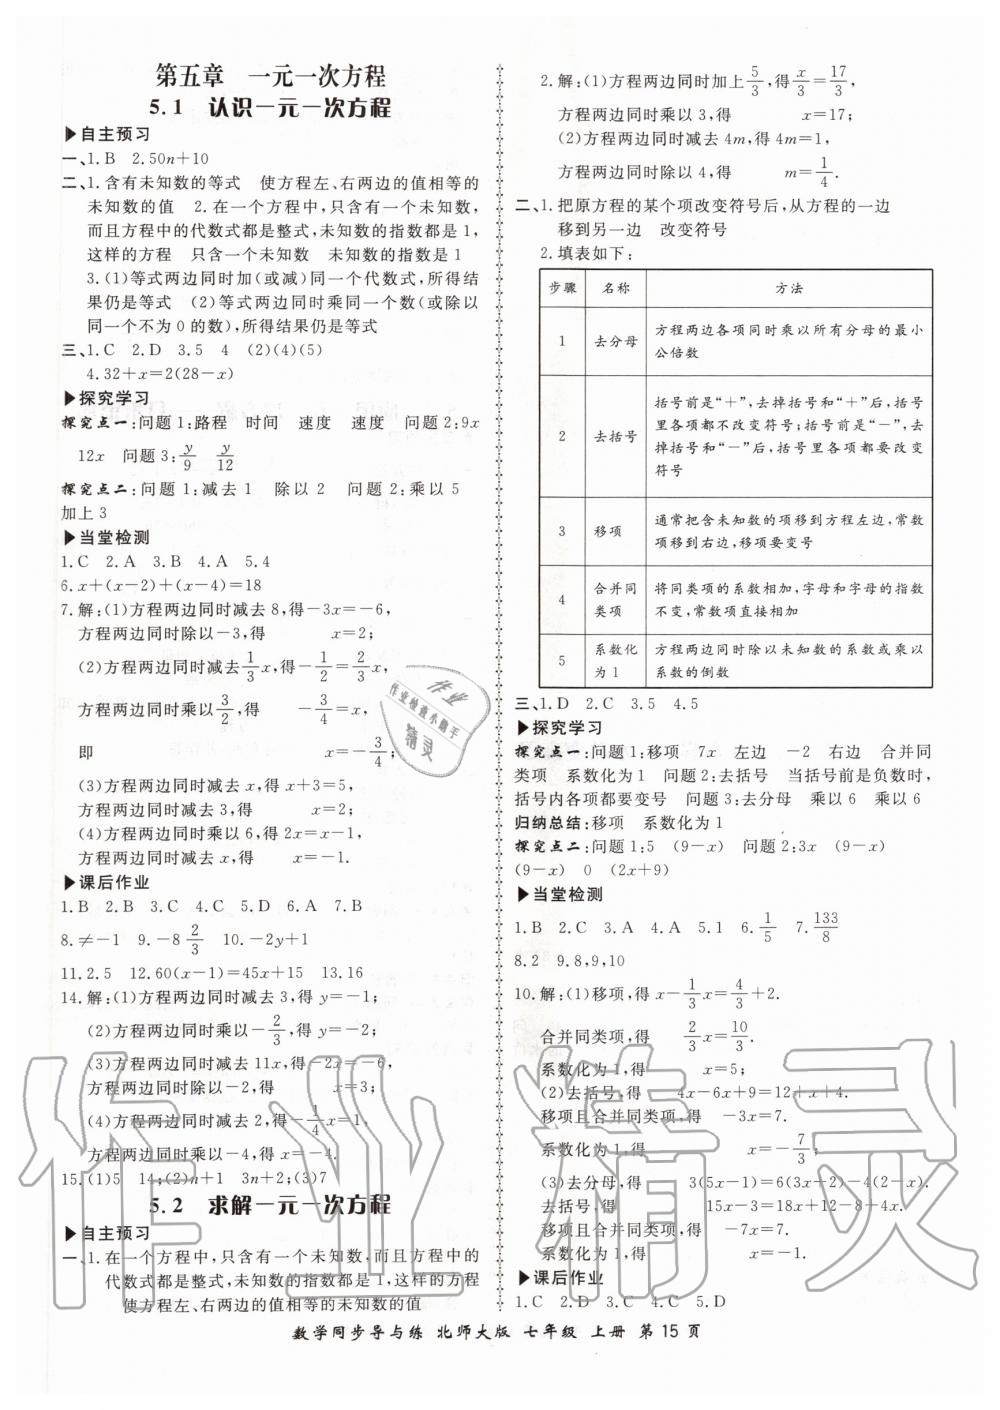 第五章 一元一次方程
5.1 认识一元一次方程
▶自主预习
一、1.B 2.50n+10
二、1.含有未知数的等式 使方程左、右两边的值相等的
未知数的值 2.在一个方程中,只含有一个未知数,
而且方程中的代数式都是整式,未知数的指数都是1,
这样的方程 只含一个未知数 未知数的指数是1
3.(1)等式两边同时加(或减)同一个代数式,所得结
果仍是等式 (2)等式两边同时乘同一个数(或除以
同一个不为0的数),所得结果仍是等式
三、1.C 2.D 3.5 4 (2)(4)(5)
4.32+x=2(28-x)
▶探究学习
探究点一:问题1:路程 时间 速度 速度 问题2:9x
12x 问题3:y/9 y/12
探究点二:问题1:减去1 除以2 问题2:乘以5
加上3
▶当堂检测
1.C 2.A 3.B 4.A 5.4
6.x+(x-2)+(x-4)=18
7.解:(1)方程两边同时减去8,得-3x=-6,
方程两边同时除以-3,得 x=2;
(2)方程两边同时减去1/3x,得-1/2=2/3x,
方程两边同时乘以3/2,得 -3/4=x,
即 x=-3/4;
(3)方程两边同时减去x,得x+3=5,
方程两边同时减去3,得 x=2;
(4)方程两边同时乘以6,得2x=x-1,
方程两边同时减去x,得 x=-1.
▶课后作业
1.B 2.B 3.C 4.C 5.D 6.A 7.B
8.≠-1 9.-8 2/3 10.-2y+1
11.2.5 12.60(x-1)=45x+15 13.16
14.解:(1)方程两边同时减去3,得y=-1;
(2)方程两边同时乘以-2/3,得y=-2;
(3)方程两边同时减去11x,得-2x=-6,
方程两边同时除以-2,得 x=3;
(4)方程两边同时减去2,得-1/4x=1,
方程两边同时乘以-4,得 x=-4.
15.(1)5 14;(2)n+1 3n+2;(3)7
5.2 求解一元一次方程
▶自主预习
一、1.在一个方程中,只含有一个未知数,而且方程中的
代数式都是整式,未知数的指数都是1,这样的方程
使方程左、右两边的值相等的未知数的值
2.解:(1)方程两边同时加上5/3,得x/3=17/3,
方程两边同时乘以3,得 x=17;
(2)方程两边同时减去4m,得4m=1,
方程两边同时除以4,得 m=1/4.
二、1.把原方程的某个项改变符号后,从方程的一边
移到另一边 改变符号
2.填表如下:
步骤 名称 方法
1 去分母 方程两边各项同时乘以所有分母的最小
公倍数
2 去括号 括号前是“+”,去掉括号和“+”后,括号
里各项都不改变符号;括号前是“-”,去
掉括号和“-”后,括号里各项都要改变
符号
3 移项 通常把含未知数的项移到方程左边,常数
项移到右边,移项要变号
4 合并同类项 将同类项的系数相加,字母和字母的指数
不变,常数项直接相加
5 系数化为1 方程两边同时除以未知数的系数或乘以
系数的倒数
三、1.D 2.C 3.5 4.5
▶探究学习
探究点一:问题1:移项 7x 左边 -2 右边 合并同
类项 系数化为1 问题2:去括号 当括号前是负数时,
括号内各项都要变号 问题3:去分母 乘以6 乘以6
归纳总结:移项 系数化为1
探究点二:问题1:5 (9-x) 问题2:3x (9-x)
(9-x) 0 (2x+9)
▶当堂检测
1.B 2.C 3.A 4.A 5.1 6.1/5 7.133/8
8.2 9.8,9,10
10.解:(1)移项,得x-1/3x=4/3+2.
合并同类项,得 2/3x=10/3.
系数化为1,得 x=5;
(2)去括号,得 4x-6x+9=12+x+4.
移项且合并同类项,得 -3x=7.
系数化为1,得 x=-7/3;
(3)去分母,得 3(5x-1)=6(3x+2)-4(2-x).
去括号,得 15x-3=18x+12-8+4x.
移项且合并同类项,得 -7x=7.
系数化为1,得 x=-1.
▶课后作业
1.C 2.C 3.D 4.C 5.D
数学同步导与练 北师大版 七年级 上册 第15页
作业
作业检查小助手
精灵
作业精灵